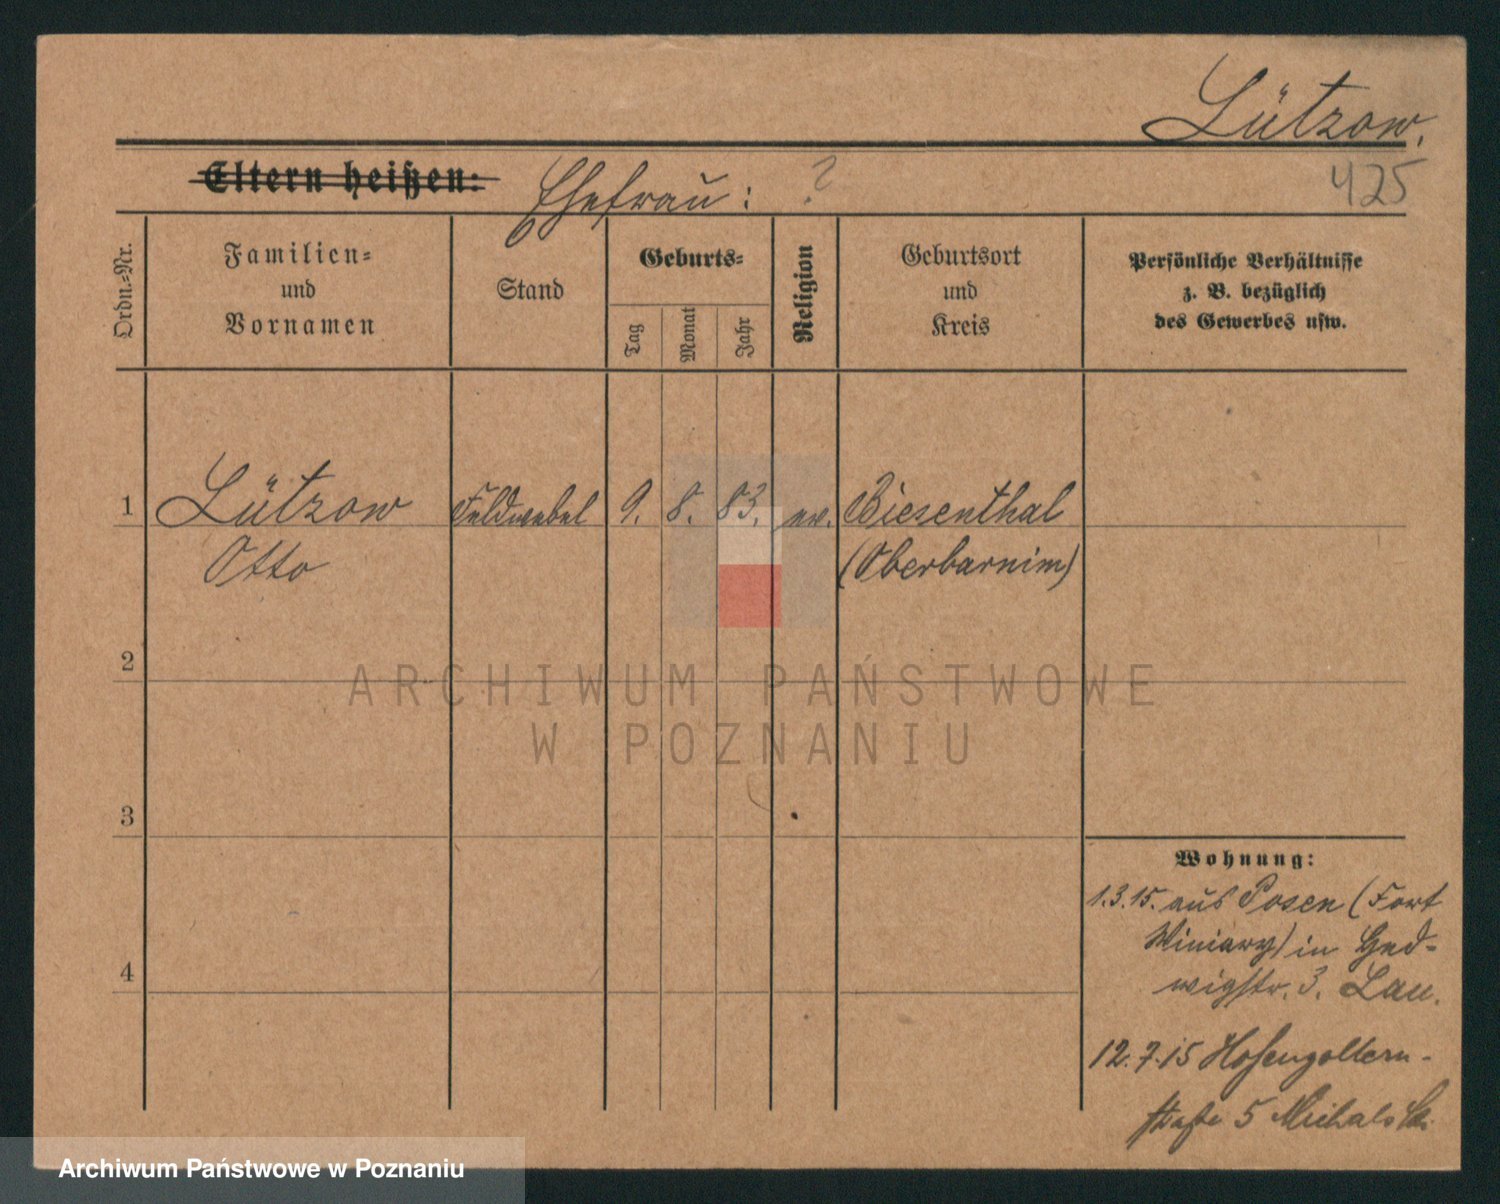 Lützow.
425
Eltern heißen: Ehefrau: ?
Ordn.-Nr.
Familien-
und
Vornamen
Stand
Geburts-
Tag
Monat
Jahr
Religion
Geburtsort
und
Kreis
Persönliche Verhältnisse
z. B. bezüglich
des Gewerbes usw.
1 Lützow Feldwebel 9. 8. 83. ev. Biesenthal
Otto (Oberbarnim)
2
ARCHIWUM PAŃSTWOWE
W POZNANIU
3
Wohnung:
1.3.15. aus Posen (Fort
Winiary) in Hed-
wigstr. 3. Lau.
4
12.7.15 Hohenzollern-
straße 5 Michalski
Archiwum Państwowe w Poznaniu